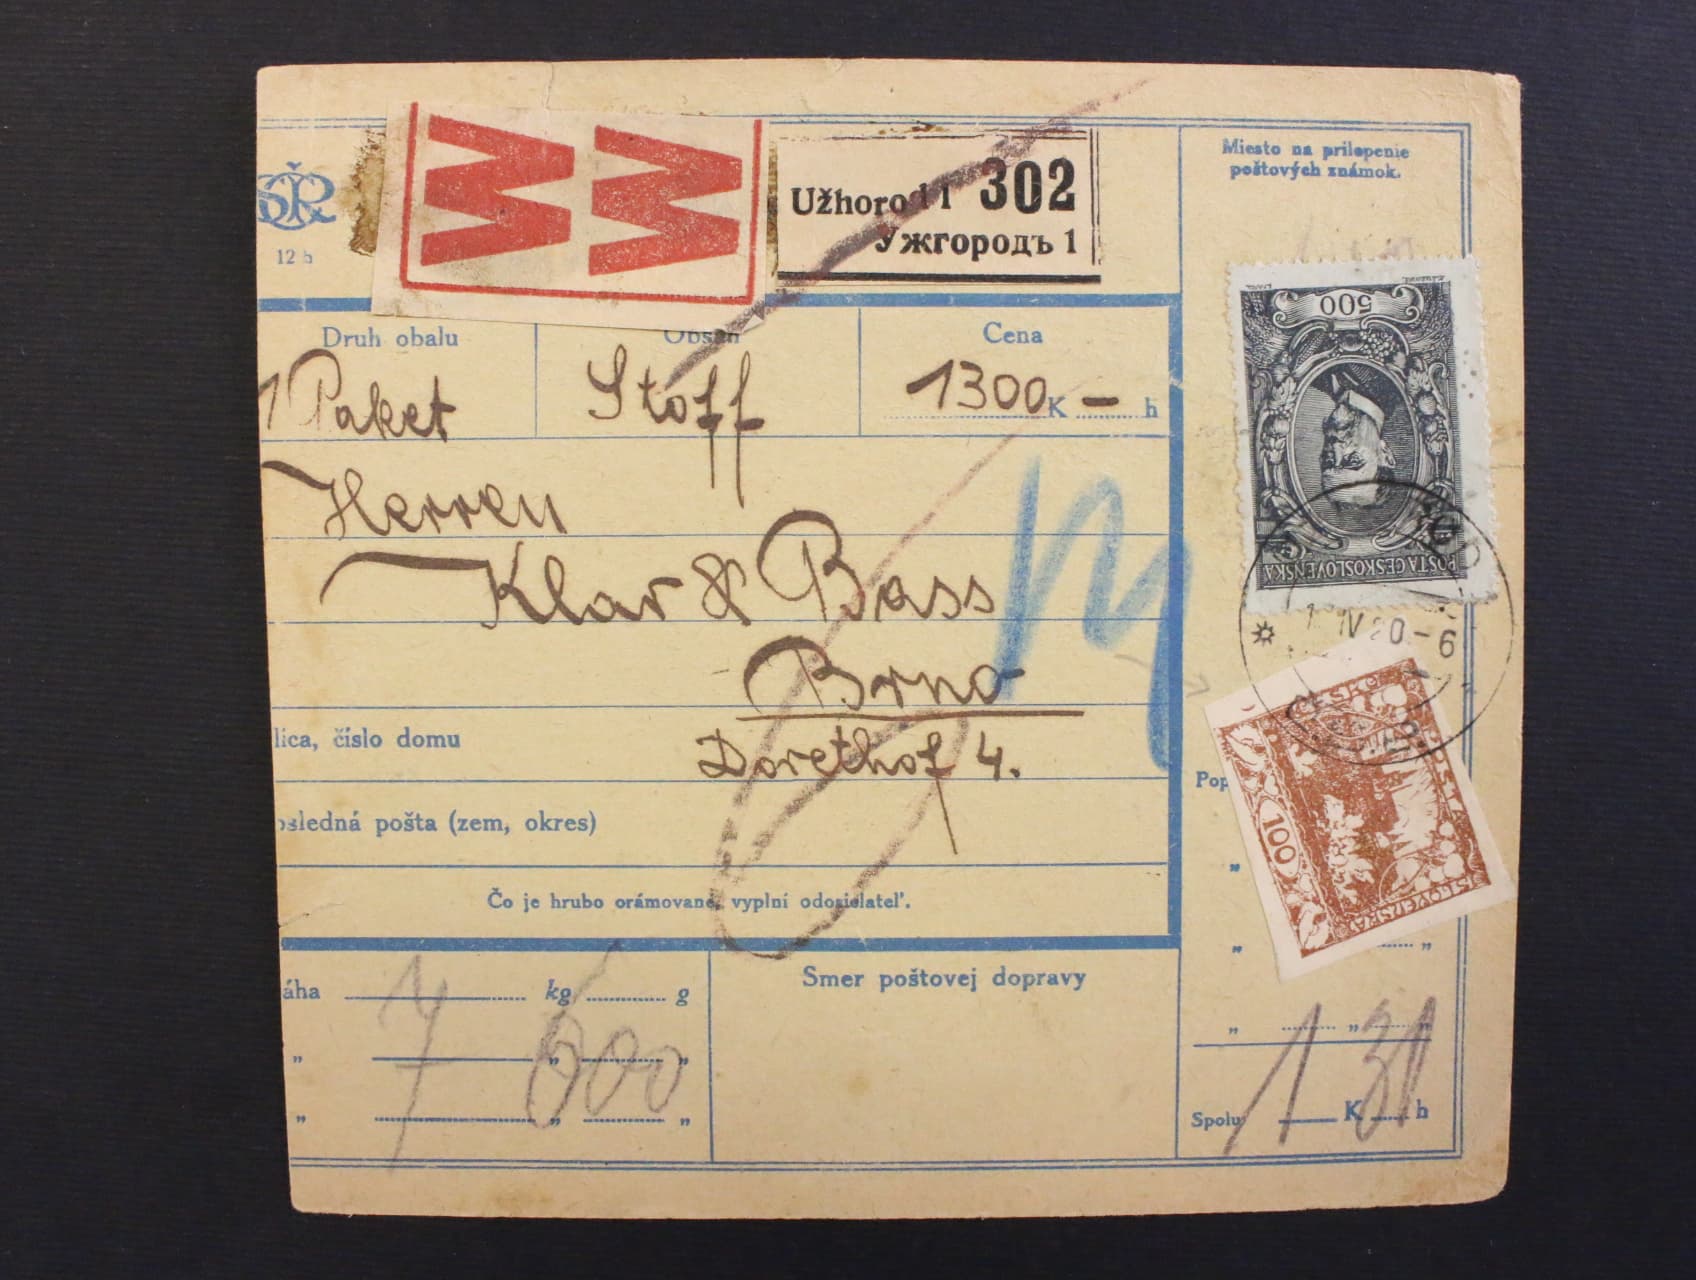 Miesto na prilepenie
poštových známok.
ČSR
12 h
W W
Užhorod 1 302
Ужгородъ 1
Druh obalu
Obsah
Cena
1 Paket
Stoff
1300 K — h
500
POŠTA ČESKOSLOVENSKÁ
Herren
Klar & Bass
Brno
Dorethof 4.
M
IV 20 - 6
100
lica, číslo domu
osledná pošta (zem, okres)
Čo je hrubo orámované, vyplní odosielateľ.
áha kg g
7 600
Smer poštovej dopravy
Pop
Spolu 1 K 31 h